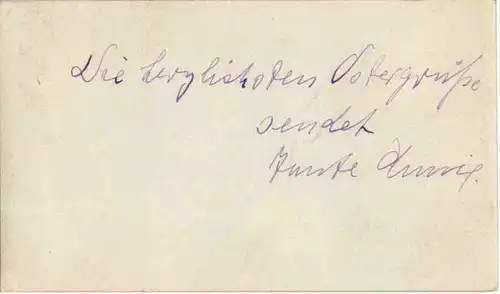 Die herzlichsten Ostergrüße
sendet
Tante